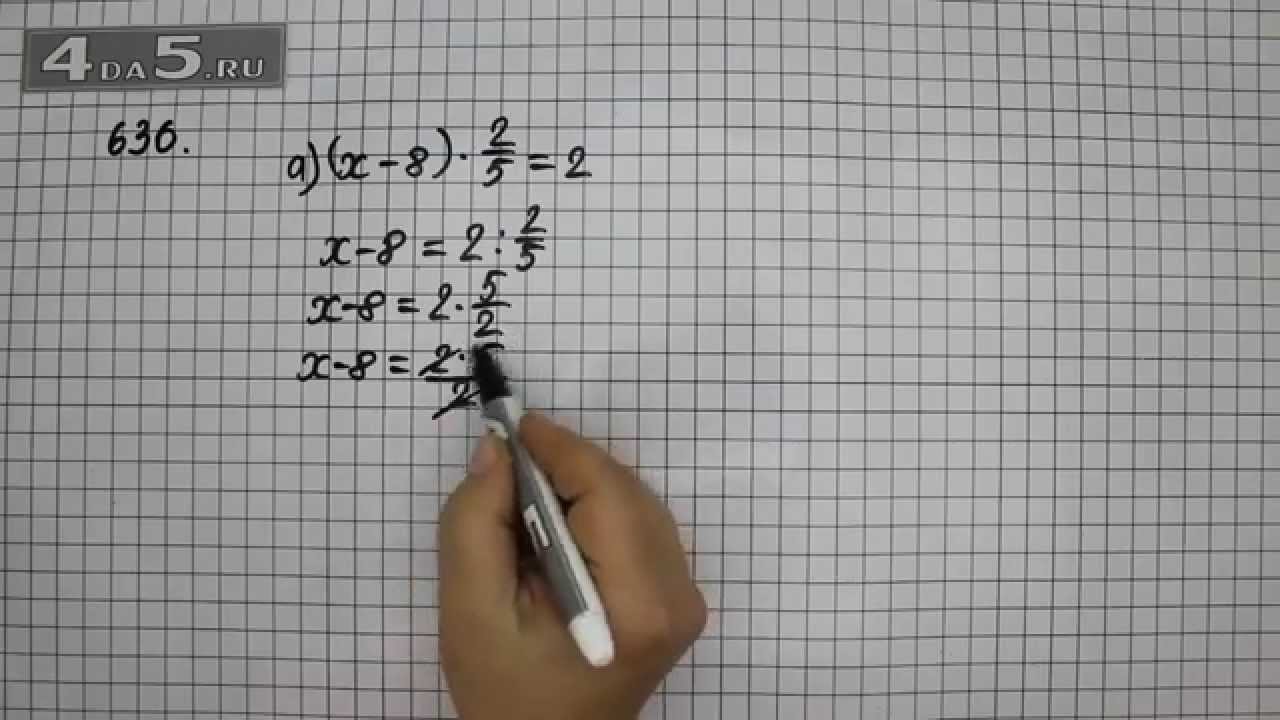 4DA5.RU
636.
а) (x - 8) · 2/5 = 2
x - 8 = 2 : 2/5
x - 8 = 2 · 5/2
x - 8 = 2 · 5/2